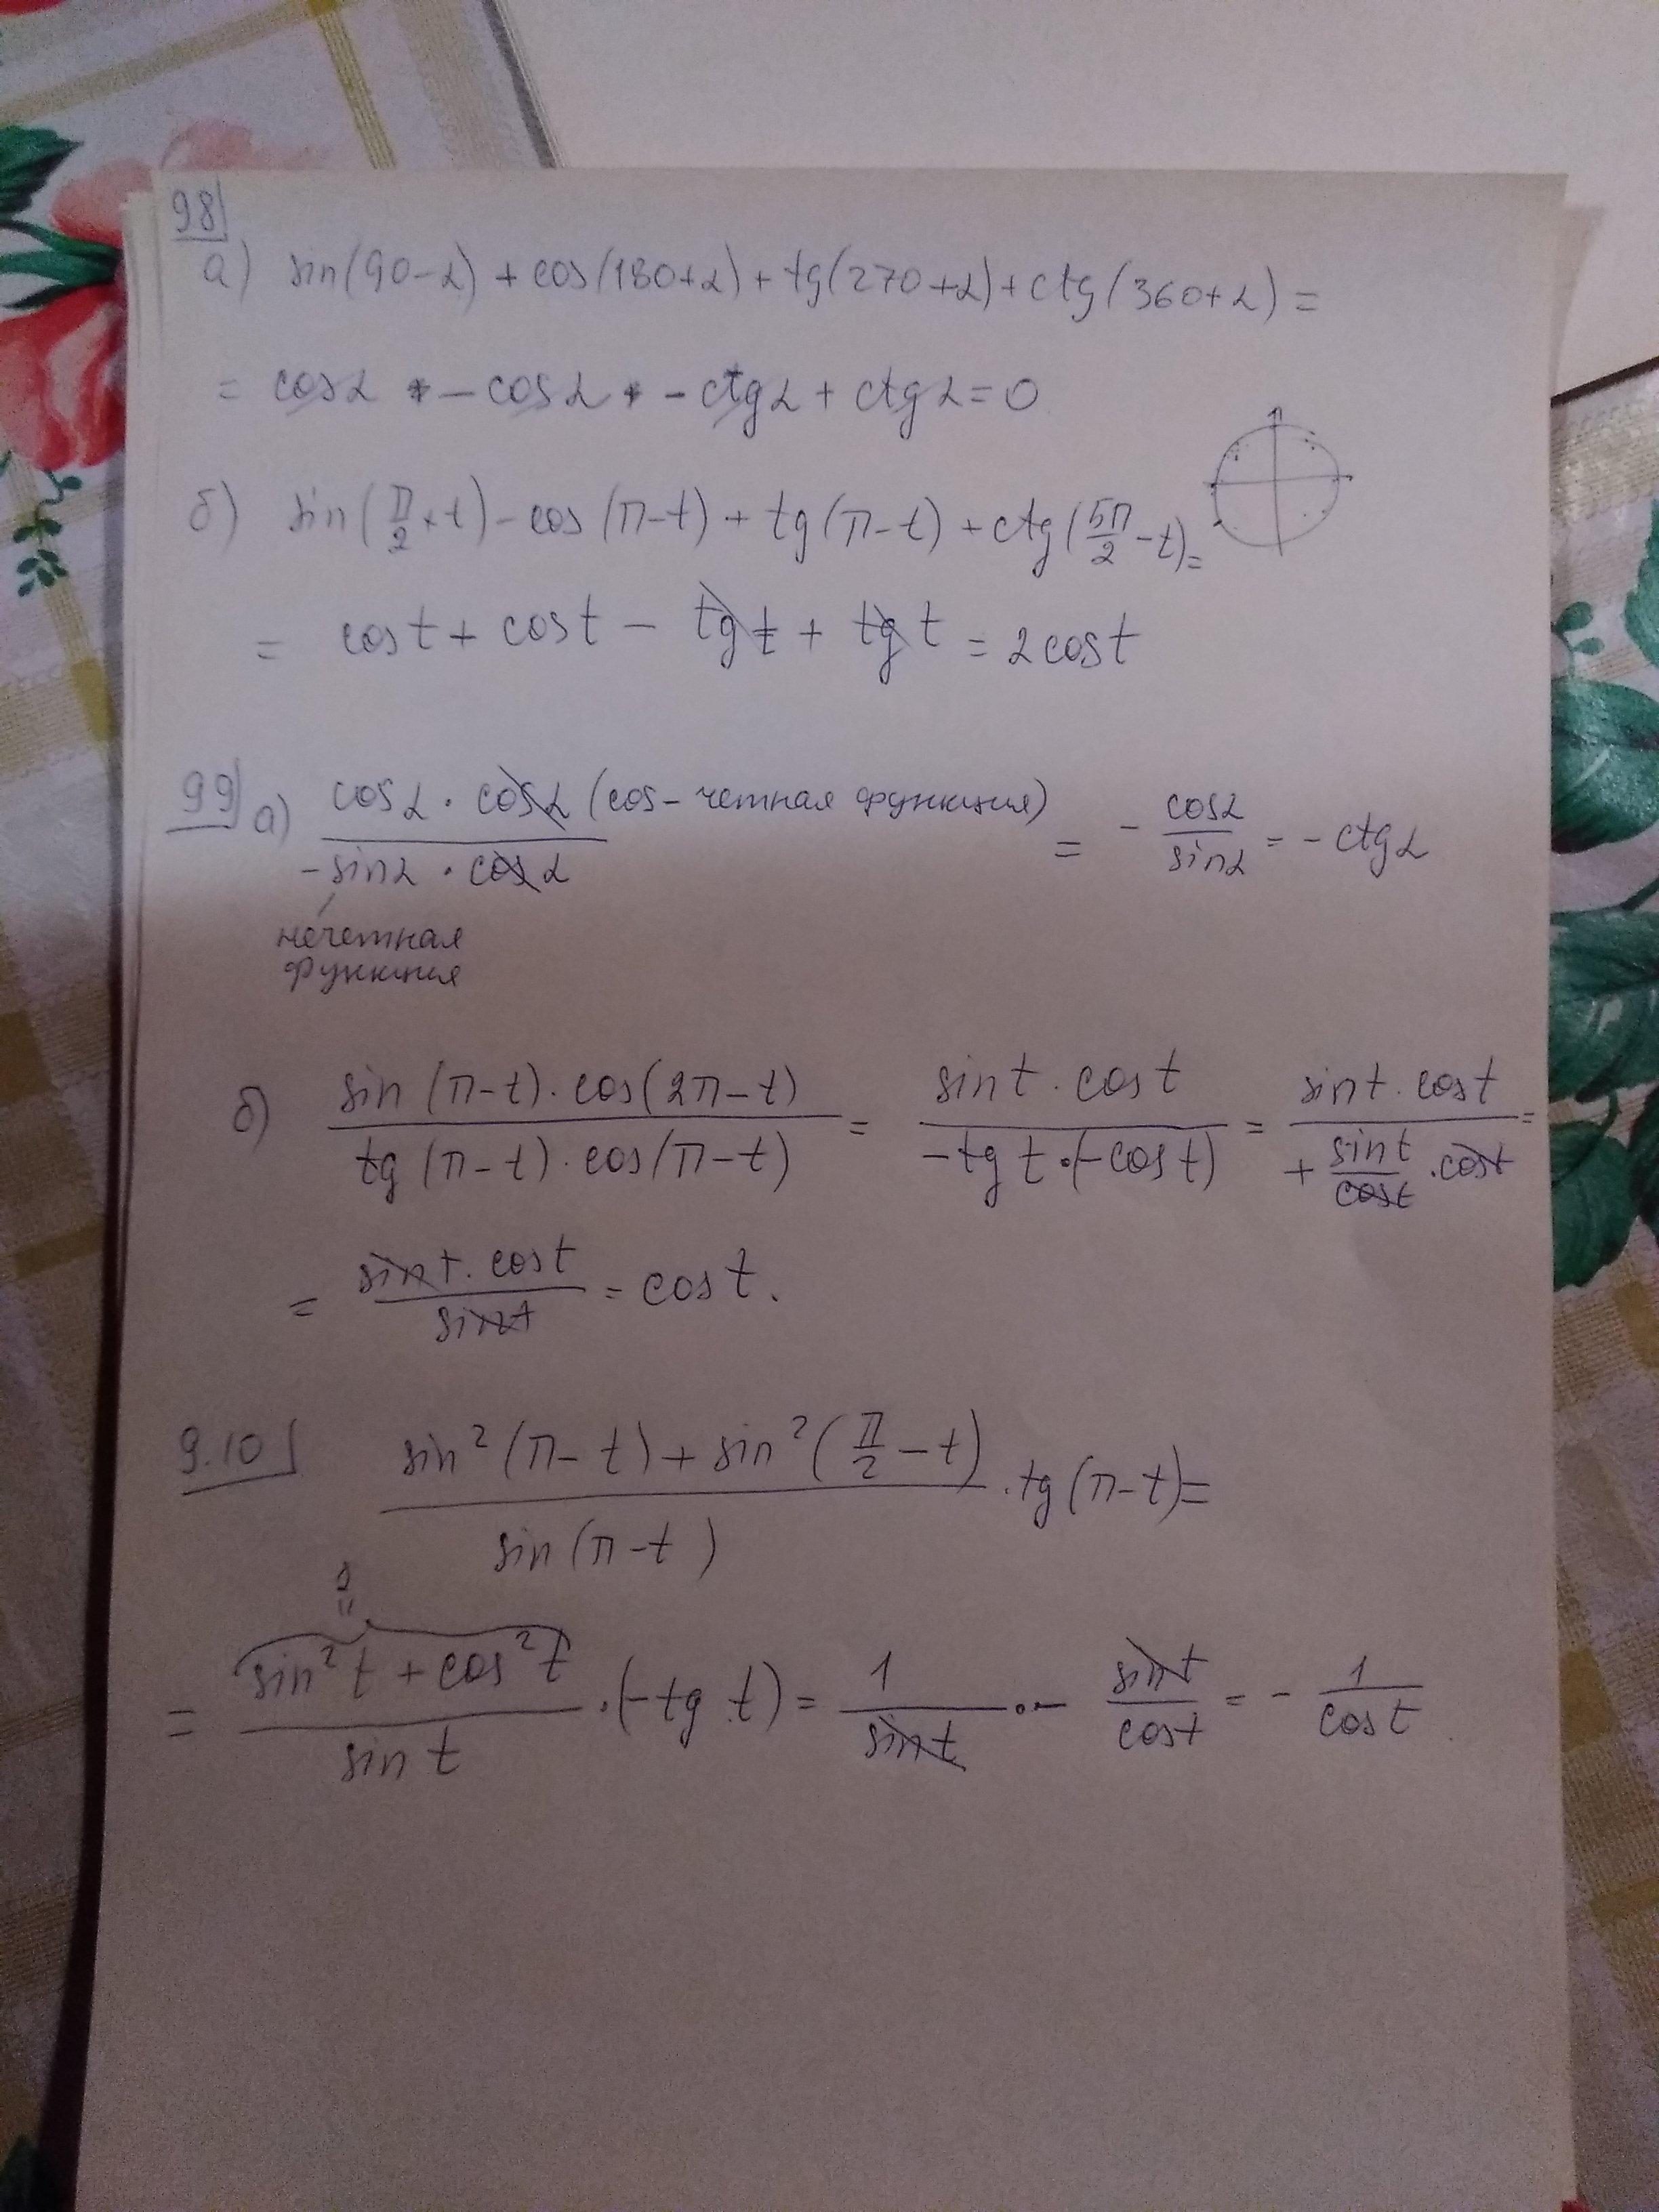 98
а) sin(90-α) + cos(180+α) + tg(270+α) + ctg(360+α) =
= cosα - cosα - ctgα + ctgα = 0
б) sin(π/2 + t) - cos(π-t) + tg(π-t) + ctg(5π/2 - t) =
= cost + cost - tgt + tgt = 2cost
99 а) cosα · cosα (cos - четная функция) / -sinα · cosα = - cosα/sinα = - ctgα
нечетная
функция
б) sin(π-t)·cos(2π-t) / tg(π-t)·cos(π-t) = sint·cost / -tgt·(-cost) = sint·cost / + sint/cost · cost =
= sint·cost / sint = cost.
9.10 sin²(π-t) + sin²(π/2 - t) / sin(π-t) · tg(π-t) =
1
"
= sin²t + cos²t / sint · (-tgt) = 1/sint · - sint/cost = - 1/cost